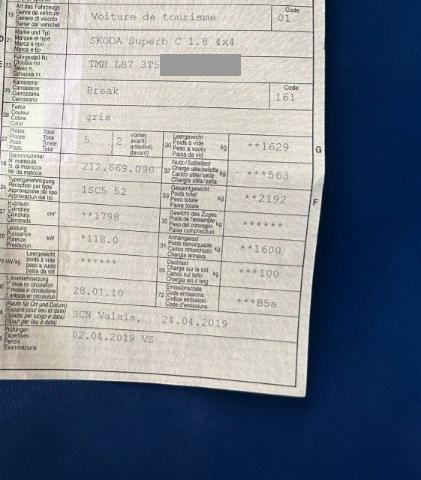 Art des Fahrzeugs
Genre de véhicule
Genere di veicolo
Voiture de tourisme
Code
01
Marke und Typ
Marque et type
Marca e tipo
SKODA Superb C 1.8 4x4
Fahrgestell-Nr.
Châssis no
TMB LB7 3T5
Karosserie
Carrosserie
Carrozzeria
Break
Code
161
Farbe
Couleur
Colore
gris
Plätze Total
Places Total
Posti Totale
5
2
vorne)
avant)
anteriori)
davant)
30
Leergewicht
Poids à vide
Peso a vuoto
Paisa da vid
kg
**1629
G
Stammnummer
No matricule
N. di matricola
212.669.090
32
Nutz-/Sattellast
Charge utile/sellette
Carico utile/sella
Chargia utila/sella
kg
***563
Typengenehmigung
Réception par type
Approvazione del tipo
1SC5 52
33
Gesamtgewicht
Poids total
Peso totale
Paisa totala
kg
**2192
F
Hubraum
Cylindrée
Cilindrata
cm³
**1798
35
Gewicht des Zuges
Poids de l'ensemble
Peso del convoglio
kg
******
Leistung
Puissance
Potenza
kW
*118.0
31
Anhängelast
Poids remorquable
Carico rimorchiato
Chargia annexa
kg
**1600
Leergewicht
poids à vide
peso a vuoto
paisa da vid
******
55
Dachlast
Charge sur le toit
Carico sul tetto
kg
***100
1. Inverkehrsetzung
28.01.10
72
Emissionscode
Code émissions
Codice emissioni
Code d'emissiuns
***B5a
(Raum für Ort und Datum)
(Espace pour lieu et date)
(Spazio per luogo e data)
SCN Valais, 24.04.2019
Prüfungen
Expertises
Perizie
Examinaziuns
02.04.2019 VS